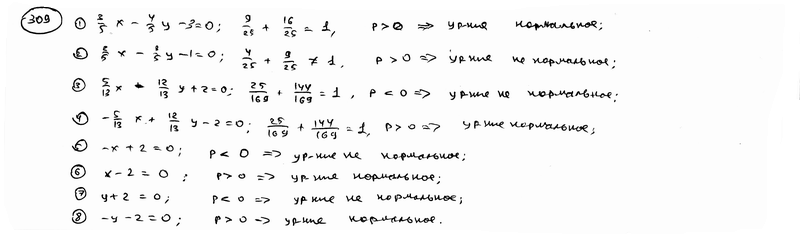 309 ① 3/5 x - 4/5 y - 3 = 0; 9/25 + 16/25 = 1, P > 0 => ур-ние нормальное;
② 2/5 x - 3/5 y - 1 = 0; 4/25 + 9/25 ≠ 1, P > 0 => ур-ние не нормальное;
③ 5/13 x - 12/13 y + 2 = 0; 25/169 + 144/169 = 1, P < 0 => ур-ние не нормальное;
④ -5/13 x + 12/13 y - 2 = 0; 25/169 + 144/169 = 1, P > 0 => ур-ние нормальное;
⑤ -x + 2 = 0; P < 0 => ур-ние не нормальное;
⑥ x - 2 = 0; P > 0 => ур-ние нормальное;
⑦ y + 2 = 0; P < 0 => ур-ние не нормальное;
⑧ -y - 2 = 0; P > 0 => ур-ние нормальное.